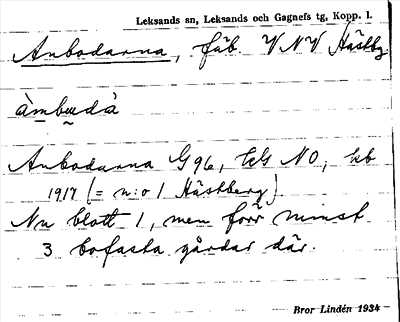 Leksands sn, Leksands och Gagnefs tg, Kopp. l.
Anbodarna, fäb. VNV Hästbg
àmbudà
Anbodarna G 96, EcG NO, kb
1917 (= n:o 1 Hästberg).
Nu blott 1, men förr minst
3 bofasta gårdar där.
Bror Lindén 1934